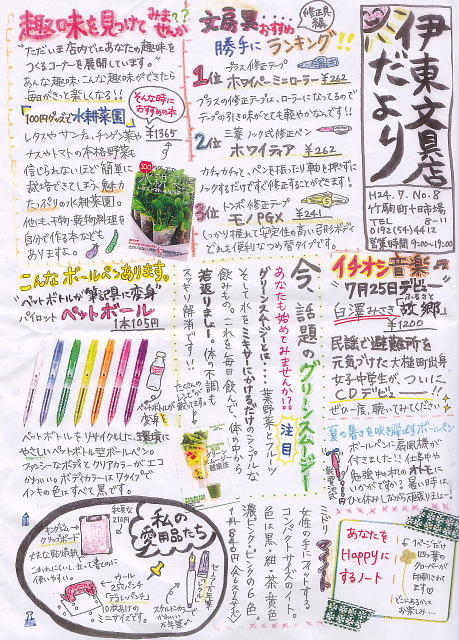 伊東文具店
だより
H24.7. No.8
竹駒町十日市場
8-11
TEL
0192(54)4412
営業時間 9:00~19:00
趣味を見つけてみませんか??
"ただいま店内ではあなたの趣味を
つくるコーナーを展開しています。"
あんな趣味・こんな趣味ができたら
毎日がきっと楽しくなる!!
そんな時に
おすすめの本
「100円グッズで水耕菜園」
¥1365
レタスやサンチュ、チンゲン菜や
ナスやトマトの本格野菜も
信じられないほど簡単に
栽培できてしまう、魅力
たっぷりの水耕菜園。
他にも、干物・乾物料理を
自分で作る本なども
ありますよ。
文房具おすすめ
修正具編
勝手にランキング!!
1位 プラス修正テープ
ホワイパーミニローラー ¥262
プラスの修正テープは、ローラーになってるので
テープの引き味がとても軽やかなんです!!
2位 三菱 ノック式修正ペン
ホワイティア ¥262
カチャカチャと、ペンを振ったり軸を押さずに
ノックするだけですぐ修正することができます!
3位 トンボ 修正テープ
モノPGX ¥241
しっかり握れて安定性の高い台形ボディ
どれも便利なつめ替タイプです。
こんなボールペンあります。
"ペットボトルが筆記具に変身"
パイロット ペットボール
1本105円
ペットボトルが
変身を
ペットボトルをリサイクルした、環境に
やさしいペットボトル型ボールペン。
ファッションなボディとクリアカラーがエコ
かわいい。ボディカラーは7タイプで
インキの色はすべて黒です。
今、話題のグリーンスムージー
あなたも始めてみませんか!?
注目
グリーンスムージーは…葉野菜とフルーツ
そして水をミキサーにかけるだけのシンプルな
飲みもの。これを毎日飲んで、体の中から
若返りましょー。体の不調も
スッキリ解消です!!
イチオシ音楽
7月25日デビュー
臼澤みさき「故郷」
ふるさと
¥1200
民謡で避難所を
元気づけた大槌町出身
女子中学生が、ついに
CDデビューー!!
ぜひ一度、聴いてみてください☆
夏の暑さを吹き飛ばすボールペン
ボールペンに扇風機が
付きました!!仕事中や
勉強中のオトモに
いかがですか?暑い時は
ひと休みしながら頑張りましょー
私の
愛用品たち
キングジム
クリップボード
210円
ウール
25穴パンチ
「デラレパンチ」
10枚あけの
ミニサイズです。
セーラー万年筆
万年筆
ミドリ マイント
女性の手にフィットする
コンパクトサイズのノート。
色は黒・紺・茶・黄色
濃ピンク・ピンクの6色。
1冊840円
あなたを
Happyに
するノート
1ページだけ
四つ葉の
クローバーが
印刷されてます
お楽しみ…